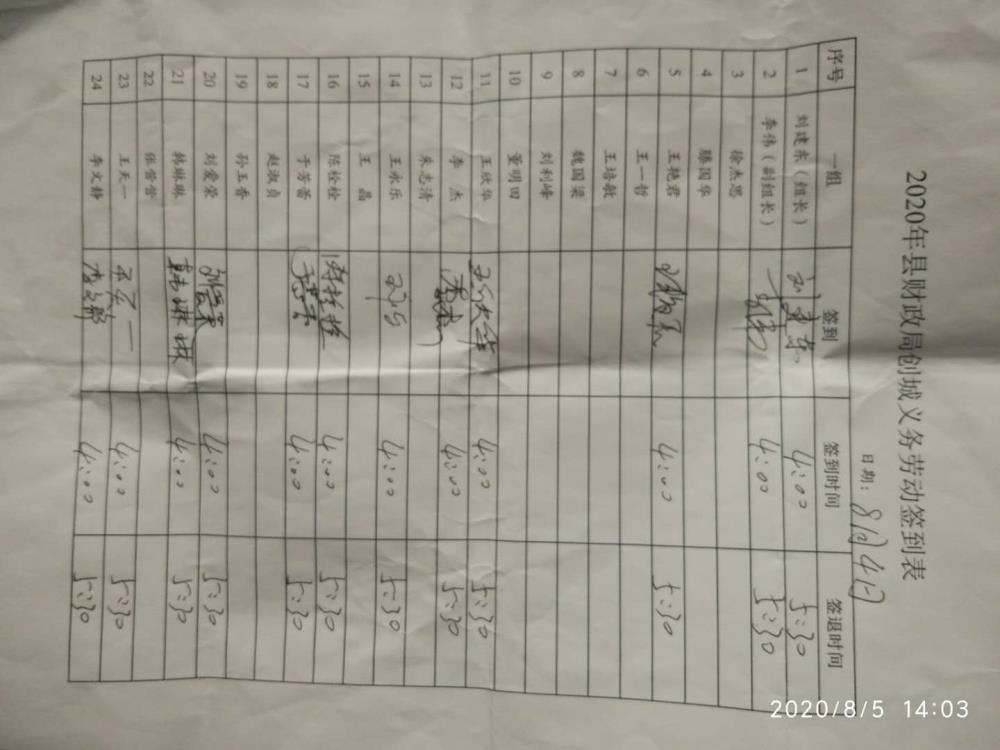 2020年县财政局创城义务劳动签到表
日期：8月4日
序号 一组 签到 签到时间 签退时间
1 刘建东（组长） 刘建东 4:00 5:30
2 李伟（副组长） 李伟 4:00 5:30
3 徐杰思
4 滕国华
5 王艳君 王艳君 4:00 5:30
6 王一哲
7 王培敏
8 魏国梁
9 刘利峰
10 董明田
11 王欣华 王欣华 4:00 5:30
12 李杰 4:00 5:30
13 朱志清
14 王永乐 4:00 5:30
15 王晶
16 陈栓栓 陈栓栓 4:00 5:30
17 于芳蕾 4:00 5:30
18 赵淑贞
19 孙玉香
20 刘爱荣 刘爱荣 4:00 5:30
21 韩琳琳 韩琳琳 4:00 5:30
22 张营营
23 王天一 王天一 4:00 5:30
24 李文静 李文静 4:00 5:30
2020/8/5 14:03